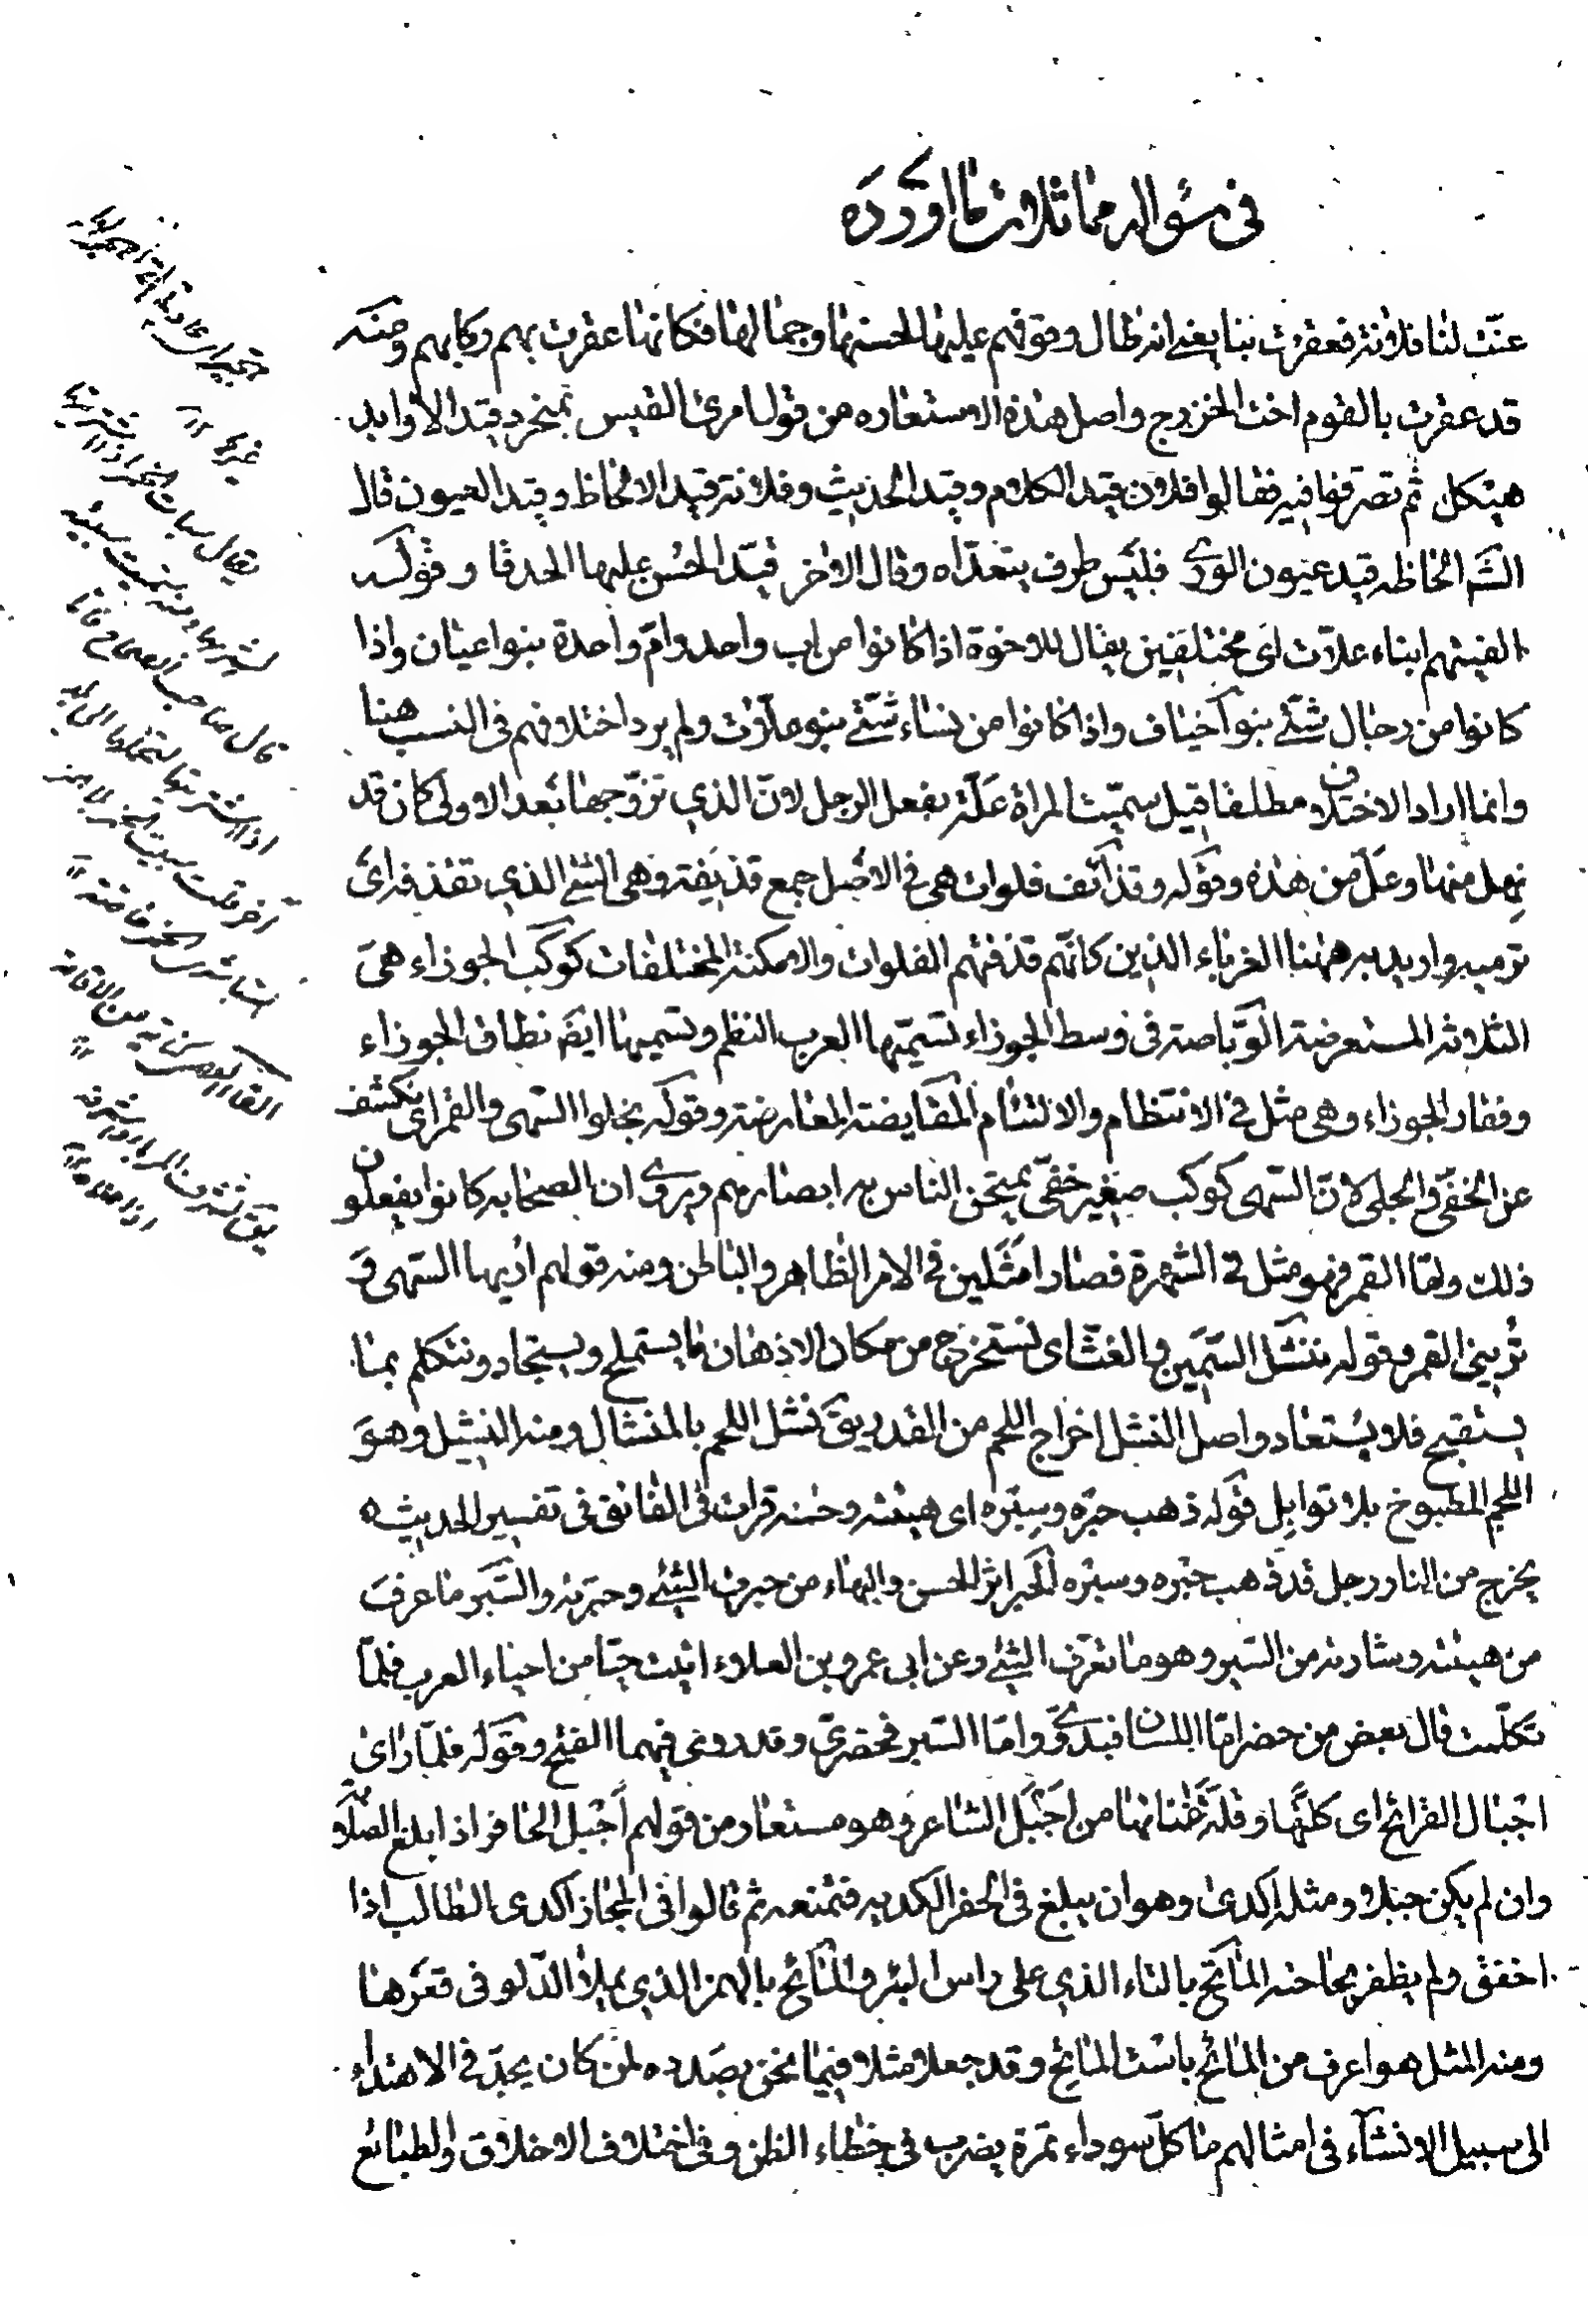 في سؤاله مما ثلاث ما اورده
عنّت لنا فلانة فعقرت بنا يعني انه طال وقوفهم عليها لحسنها وجمالها فكانها عقرت بهم ركابهم ومنه
قد عقرت بالقوم اخت الخزرج واصل هذه الاستعاره من قول امرئ القيس بمنجرد قيد الاوابد
هيكل ثم تصرفوا فيه فقالوا فلان قيد الكلام وقيد الحديث وفلانة قيد الالحاظ وقيد العيون قال
الحاظه قيد عيون الورى فليس طرف يتعداه وقال الاخر قيد الحسن عليها الحدقا وقوله
الفيتهم ابناء علات اى مختلفين يقال للاخوة اذا كانوا من اب واحد وام واحدة بنوا عيان واذا
كانوا من رجال شتى بنوا خياف واذا كانوا من نساء شتى بنو علات ولم يرد اختلافهم فى النسب هنا
وانما اراد الاختلاف مطلقا قيل سميت المراة علة بفعل الرجل لان الذي تزوجها بعد الاولى كان قد
نهل منها وعل من هذه وقوله وقذائف فلوات هى فى الاصل جمع قذيفة وهى الشئ الذي تقذفه اى
ترميه واريد به ههنا الغرباء الذين كانهم قذفتهم الفلوات والامكنة المختلفات كوكب الجوزاء هى
الثلاثة المستعرضة الوباصة فى وسط الجوزاء تسميها العرب النظم وتسميها ايضا نطاق الجوزاء
وفقار الجوزاء وهى مثل فى الانتظام والالتئام المقايضة المعارضة وقوله يجلوا السهى والقمر اى يكشف
عن الخفى والجلى لان السهى كوكب صغير خفى يمتحن الناس به ابصارهم ويروى ان الصحابه كانوا يفعلون
ذلك واما القمر فهو مثل فى الشهرة فصارا مثلين فى الامر الظاهر والباطن ومنه قولهم اريها السهى و
تريني القمر وقوله ننشل السمين والغث اى نستخرج من مكان الاذهان ما يستملح ويستجاد ونتكلم بما
يستقبح فلا يستعاد واصل النشل اخراج اللحم من القدر يق نشل اللحم بالمنشال ومنه النشيل وهو
اللحم المطبوخ بلا توابل قوله ذهب حبره وسبره اى هيئته وحسنه قرات فى الفائق فى تفسير الحديث
يخرج من النار رجل قد ذهب حبره وسبره الحبر اثر الحسن والبهاء من حبرت الشئ وحبرته والسبر ما عرف
من هيئته وشارته من السبر وهو ما تعرف الشئ وعن ابى عمرو بن العلاء اتيت حيا من احياء العرب فلما
تكلمت قال بعض من حضر اما اللسان فبدوى واما السبر فحضرى وقد روى فيهما الفتح وقوله فلما راى
اجبال القرائح اى كلتها وقلة غنائها من اجبل الشاعر وهو مستعار من قولهم اجبل الحافر اذا بلغ الصلابة
وان لم يكن جبلا ومثله اكدى وهو ان يبلغ فى الحفر الكديه فتمنعه ثم قالوا فى المجاز اكدى الطالب اذا
اخفق ولم يظفر بحاجته الماتح بالتاء الذي على راس البئر والمائح بالهمز الذي يملا الدلو فى قعرها
ومنه المثل هو اعرف من المائح باست الماتح وقد جعلا مثلا فيما نحن بصدده لمن كان يجد فى الاهتداء
الى سبيل الانشاء فى امثالهم ما كل سوداء تمرة يضرب فى خطاء الظن وفى اختلاف الاخلاق والطبائع
غيرك
يقال سبات الخمر اذا اشتريتها
لتشربها ومنه سميت سبيئه
قال صاحب الصحاح فاما
اذا اشتريتها لتحملها الى بلد
آخر قلت سبيت الخمر بلا همز